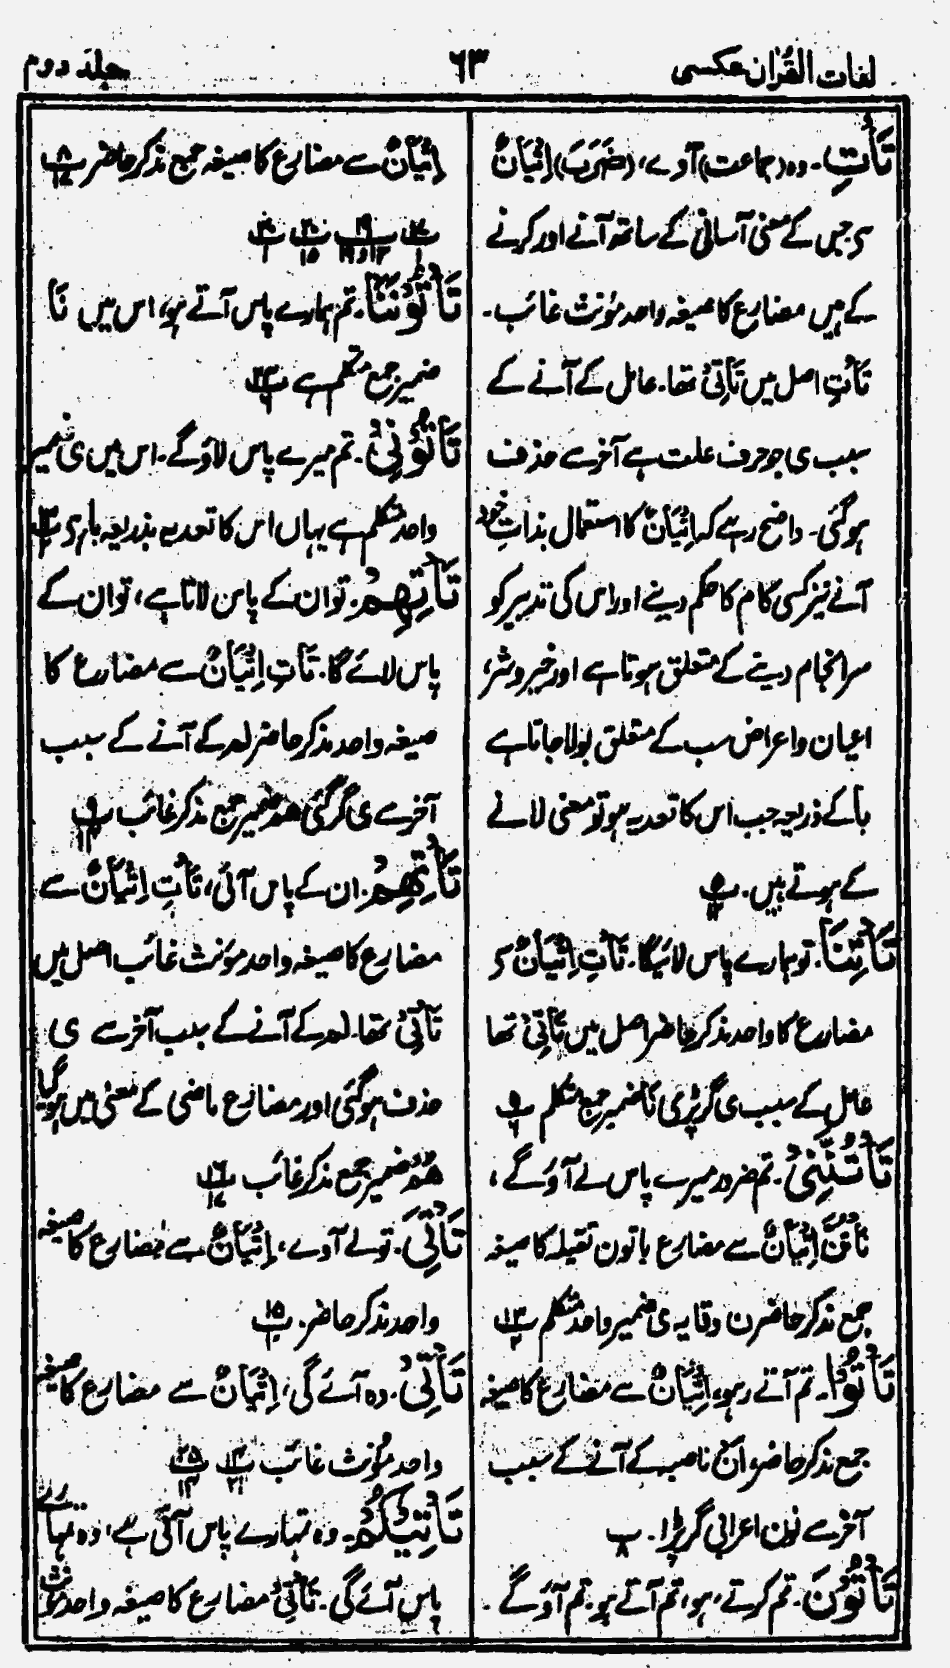 لغات القرآن عکسی
۶۳
جلد دوم
تَأْتِ۔ وہ (جماعت) آوے، (ضَرَبَ) اِتْیَانٌ
جس کے معنی آسانی کے ساتھ آنے اور کرنے
کے ہیں مضارع کا صیغہ واحد مؤنث غائب۔
تَأْتِ اصل میں تَأْتِیْ تھا۔ عامل کے آنے کے
سبب ی جو حرف علت ہے آخر سے حذف
ہوگئی۔ واضح رہے کہ اِتْیَانٌ کا استعمال بذاتِ خود
آنے نیز کسی کام کا حکم دینے اور اس کی تدبیر کو
سرانجام دینے کے متعلق ہوتا ہے اور خیر و شر،
اعیان و اعراض سب کے متعلق بولا جاتا ہے
با کے ذریعہ جب اس کا تعدیہ ہو تو معنی لانے
کے ہوتے ہیں۔ پ
تَأْتِنَا۔ تو ہمارے پاس لائیگا۔ تَأْتِ اِتْیَانٌ کر
مضارع کا واحد مذکر حاضر اصل میں تَأْتِیْ تھا
عامل کے سبب ی گر پڑی نَا ضمیر جمع متکلم پ
تَأْتُنَّنِیْ۔ تم ضرور میرے پاس لے آؤ گے،
تَأْتُنَّ اِتْیَانٌ سے مضارع بانون ثقیلہ کا صیغہ
جمع مذکر حاضر ن وقایہ ی ضمیر واحد متکلم پ ۱۳
تَأْتُوْا۔ تم آتے رہو، اِتْیَانٌ سے مضارع کا صیغہ
جمع مذکر حاضر، اَنْ ناصبہ کے آنے کے سبب
آخر سے نون اعرابی گر پڑا۔ پ ۸
تَأْتُوْنَ۔ تم کرتے ہو، تم آتے ہو۔ تم آؤ گے۔
اِتْیَانٌ سے مضارع کا صیغہ جمع مذکر حاضر پ ۸
پ پ پ پ
تَأْتُوْنَنَا۔ تم ہمارے پاس آتے ہو، اس میں نَا
ضمیر جمع متکلم ہے پ
تَأْتُوْنِیْ۔ تم میرے پاس لاؤ گے۔ اس میں ی ضمیر
واحد متکلم ہے یہاں اس کا تعدیہ بذریعہ با ہے پ
تَأْتِهِمْ۔ تو ان کے پاس لاتا ہے، تو ان کے
پاس لائے گا۔ تَأْتِ اِتْیَانٌ سے مضارع کا
صیغہ واحد مذکر حاضر لم کے آنے کے سبب
آخر سے ی گر گئی ھم ضمیر جمع مذکر غائب پ ۹
تَأْتِهِمْ۔ ان کے پاس آئی، تَأْتِ اِتْیَانٌ سے
مضارع کا صیغہ واحد مؤنث غائب اصل میں
تَأْتِیْ تھا۔ لم کے آنے کے سبب آخر سے ی
حذف ہوگئی اور مضارع ماضی کے معنی میں ہوگیا
هُمْ ضمیر جمع مذکر غائب پ ۱۶
تَأْتِیَ۔ تو لے آوے، اِتْیَانٌ سے مضارع کا صیغہ
واحد مذکر حاضر۔ پ ۱۵
تَأْتِیْ۔ وہ آئے گی، اِتْیَانٌ سے مضارع کا صیغہ
واحد مؤنث غائب پ پ
تَأْتِیْکُمْ۔ وہ تمہارے پاس آتی ہے، وہ تمہارے
پاس آئے گی۔ تَأْتِیْ مضارع کا صیغہ واحد مؤنث